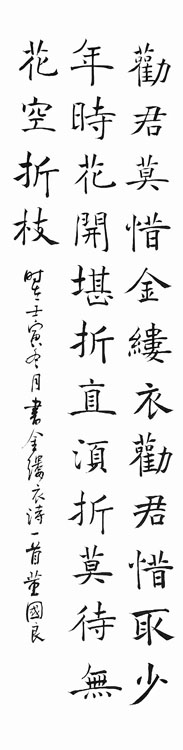 勸君莫惜金縷衣勸君惜取少
年時花開堪折直湏折莫待無
花空折枝
時在壬寅冬月書金縷衣詩一首董國良